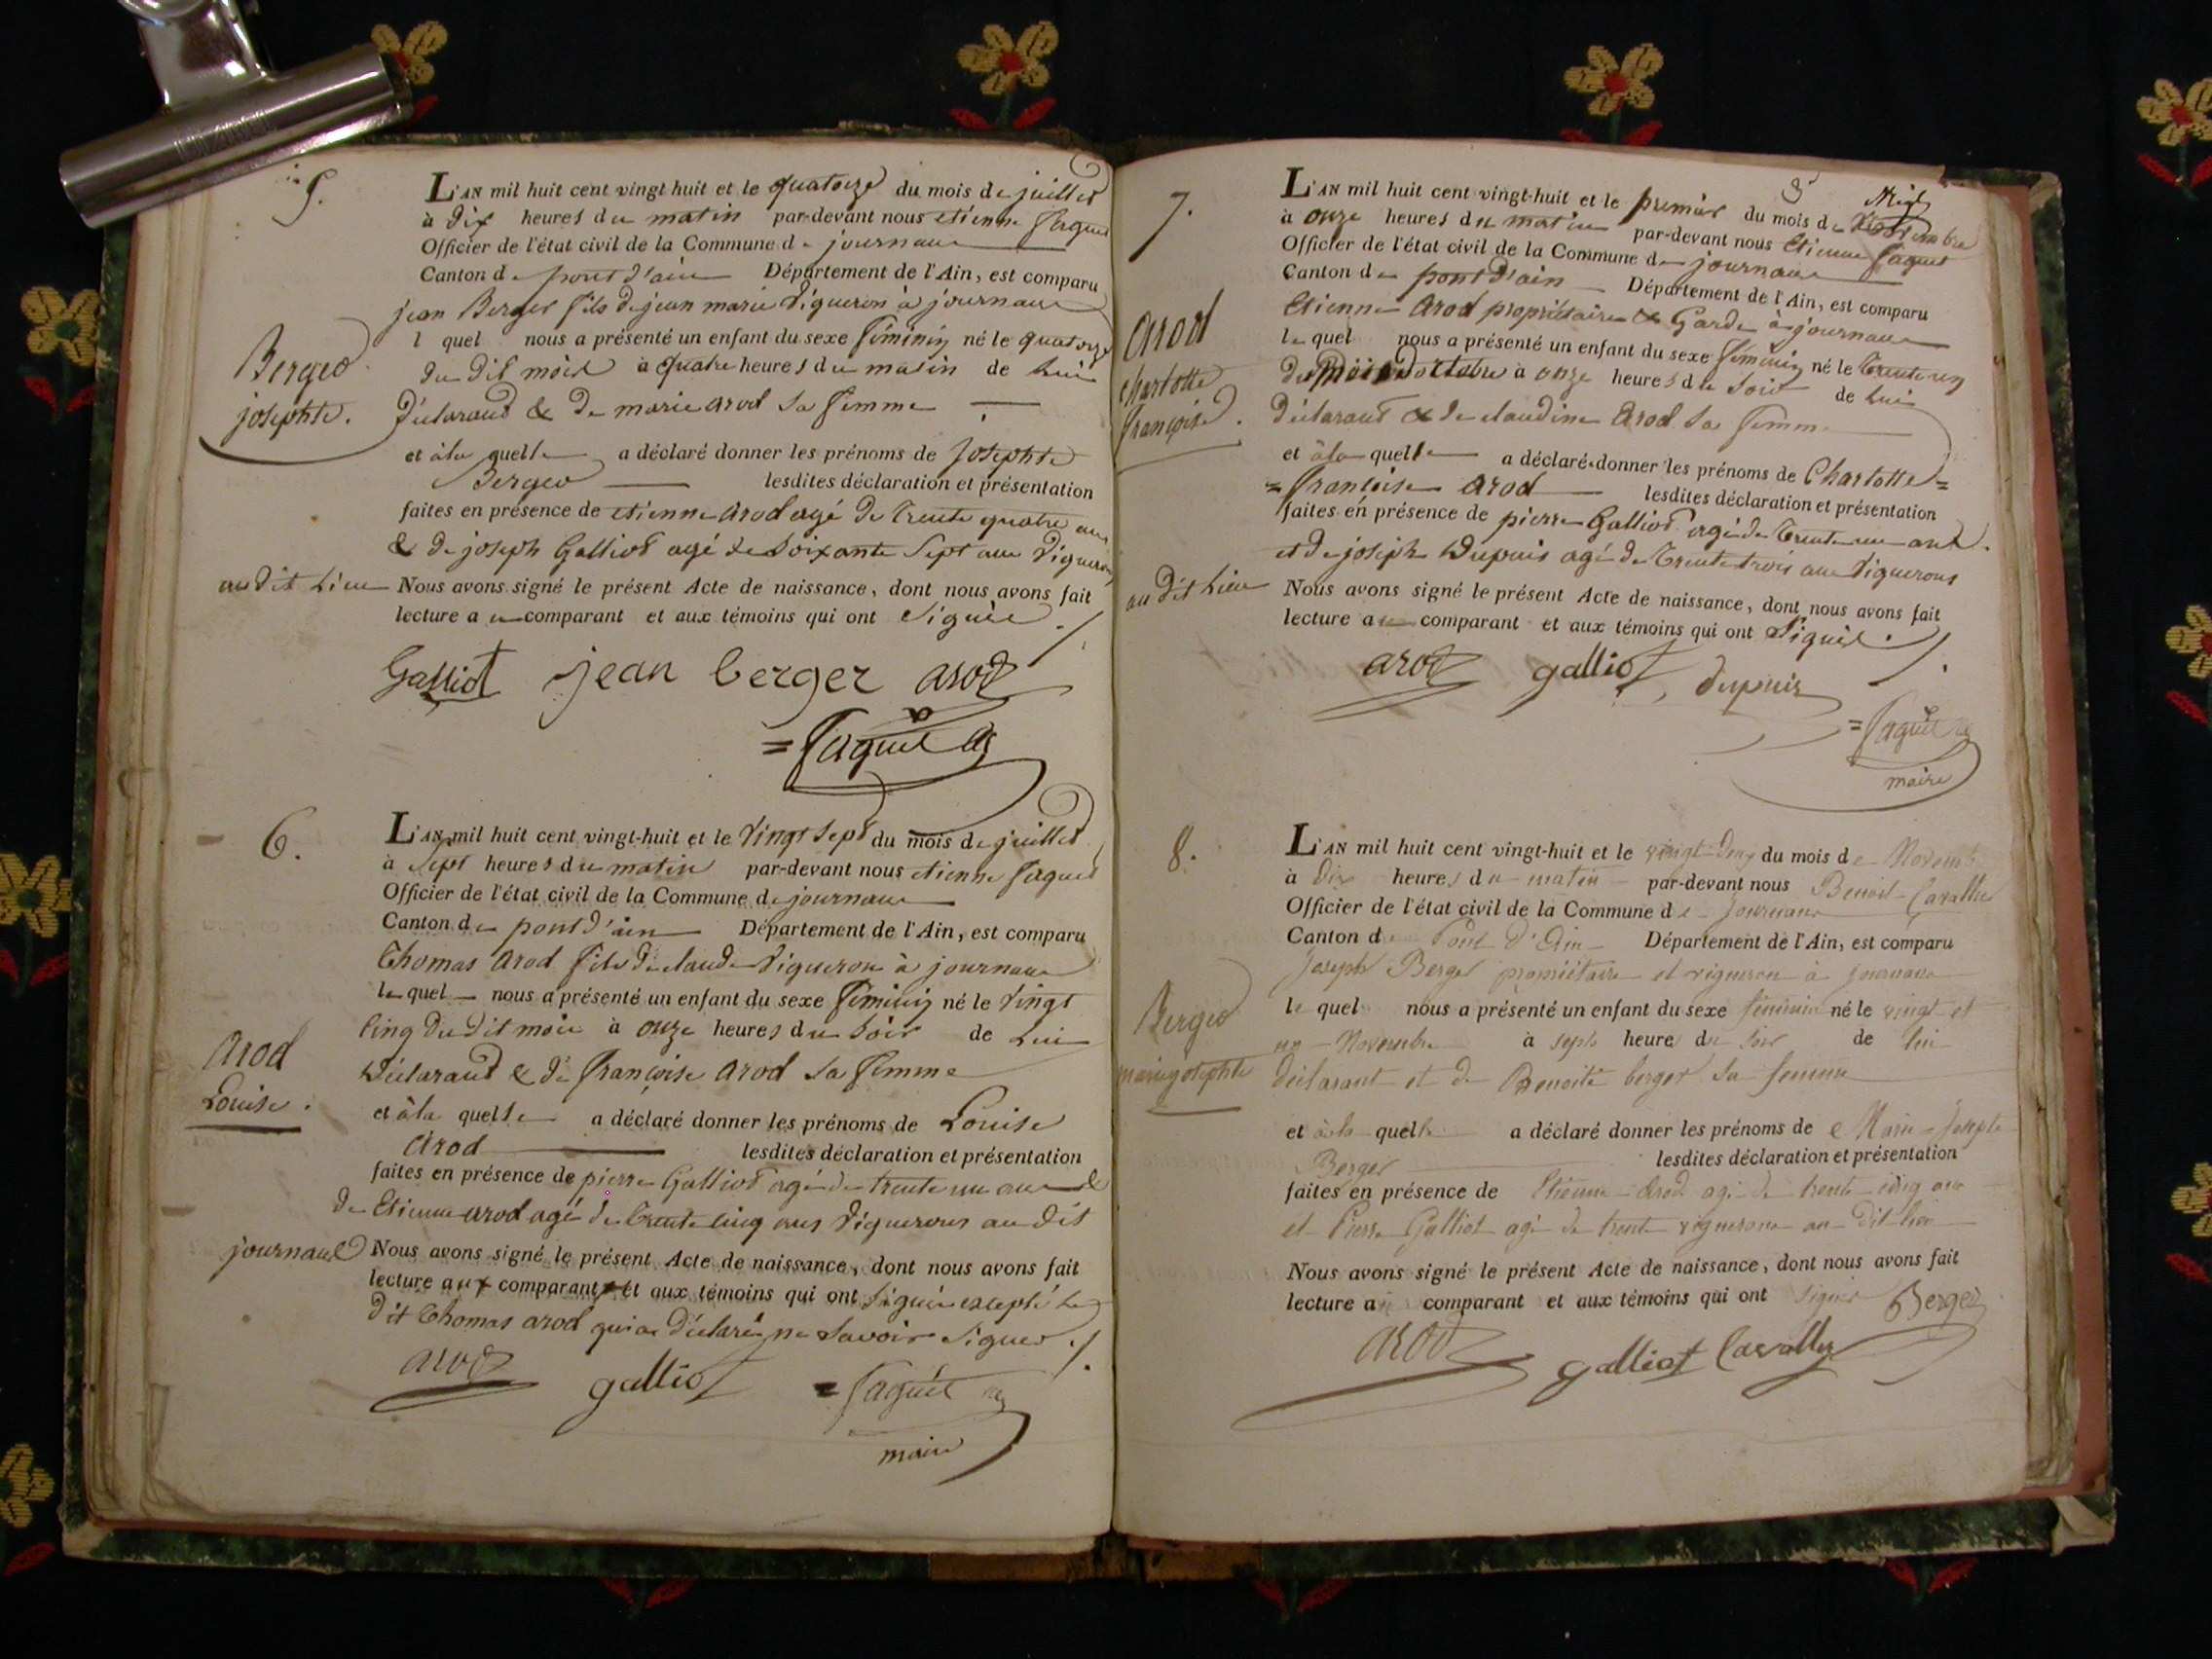 5.
L'AN mil huit cent vingt huit et le quatorze du mois de juillet
à dix heures du matin par-devant nous etienne faguet
Officier de l'état civil de la Commune de journans
Canton de pont d'ain Département de l'Ain, est comparu
jean Berger fils de jean marie vigneron à journans
l quel nous a présenté un enfant du sexe féminin né le quatorze
du dit mois à quatre heures du matin de lui
Berger
josephte.
déclarant & de marie arod sa femme
et à la quelle a déclaré donner les prénoms de josephte
Berger lesdites déclaration et présentation
faites en présence de etienne arod agé de trente quatre ans
& de joseph Galliot agé de soixante sept ans vignerons
au dit lieu Nous avons signé le présent Acte de naissance, dont nous avons fait
lecture au comparant et aux témoins qui ont signés ./.
Galliot jean berger arod
= faguet
6.
L'AN mil huit cent vingt-huit et le vingt sept du mois de juillet
à sept heures du matin par-devant nous etienne faguet
Officier de l'état civil de la Commune de journans
Canton de pont d'ain Département de l'Ain, est comparu
Thomas arod fils de claude vigneron à journans
le quel nous a présenté un enfant du sexe féminin né le vingt
cinq du dit mois à onze heures du soir de lui
arod
Louise.
déclarant & de françoise arod sa femme
et à la quelle a déclaré donner les prénoms de Louise
arod lesdites déclaration et présentation
faites en présence de pierre Galliot agé de trente un ans &
de Etienne arod agé de trente cinq ans vignerons au dit
journans Nous avons signé le présent Acte de naissance, dont nous avons fait
lecture aux comparant et aux témoins qui ont signés excepté le
dit Thomas arod qui a déclaré ne savoir signer ./.
arod galliot = faguet
maire
7.
L'AN mil huit cent vingt-huit et le premier du mois de Novembre
à onze heures du matin par-devant nous Etienne faguet
Officier de l'état civil de la Commune de journans
Canton de pont d'ain Département de l'Ain, est comparu
Etienne arod propriétaire & Garde à journans
le quel nous a présenté un enfant du sexe féminin né le trente un
du mois d'octobre à onze heures du soir de lui
arod
charlotte
françoise.
déclarant & de claudine arod sa femme
et à la quelle a déclaré donner les prénoms de Charlotte =
= françoise arod lesdites déclaration et présentation
faites en présence de pierre Galliot agé de trente un ans
et de joseph Dupuis agé de trente trois ans vignerons
au dit lieu Nous avons signé le présent Acte de naissance, dont nous avons fait
lecture au comparant et aux témoins qui ont signés ./.
arod galliot dupuis
= faguet
maire
8.
L'AN mil huit cent vingt-huit et le vingt-deux du mois de Novembre
à dix heures du matin par-devant nous Benoit
Officier de l'état civil de la Commune de journans
Canton de Pont d'Ain Département de l'Ain, est comparu
Joseph Berger propriétaire et vigneron à journans
le quel nous a présenté un enfant du sexe féminin né le vingt et
un Novembre à sept heures du soir de lui
Berger
marie josephte
déclarant et de Benoite berger sa femme
et à la quelle a déclaré donner les prénoms de Marie-Josephte
Berger lesdites déclaration et présentation
faites en présence de Etienne Arod agé de trente cinq ans
et Pierre Galliot agé de trente vignerons au dit lieu
Nous avons signé le présent Acte de naissance, dont nous avons fait
lecture au comparant et aux témoins qui ont signés Berger
arod galliot